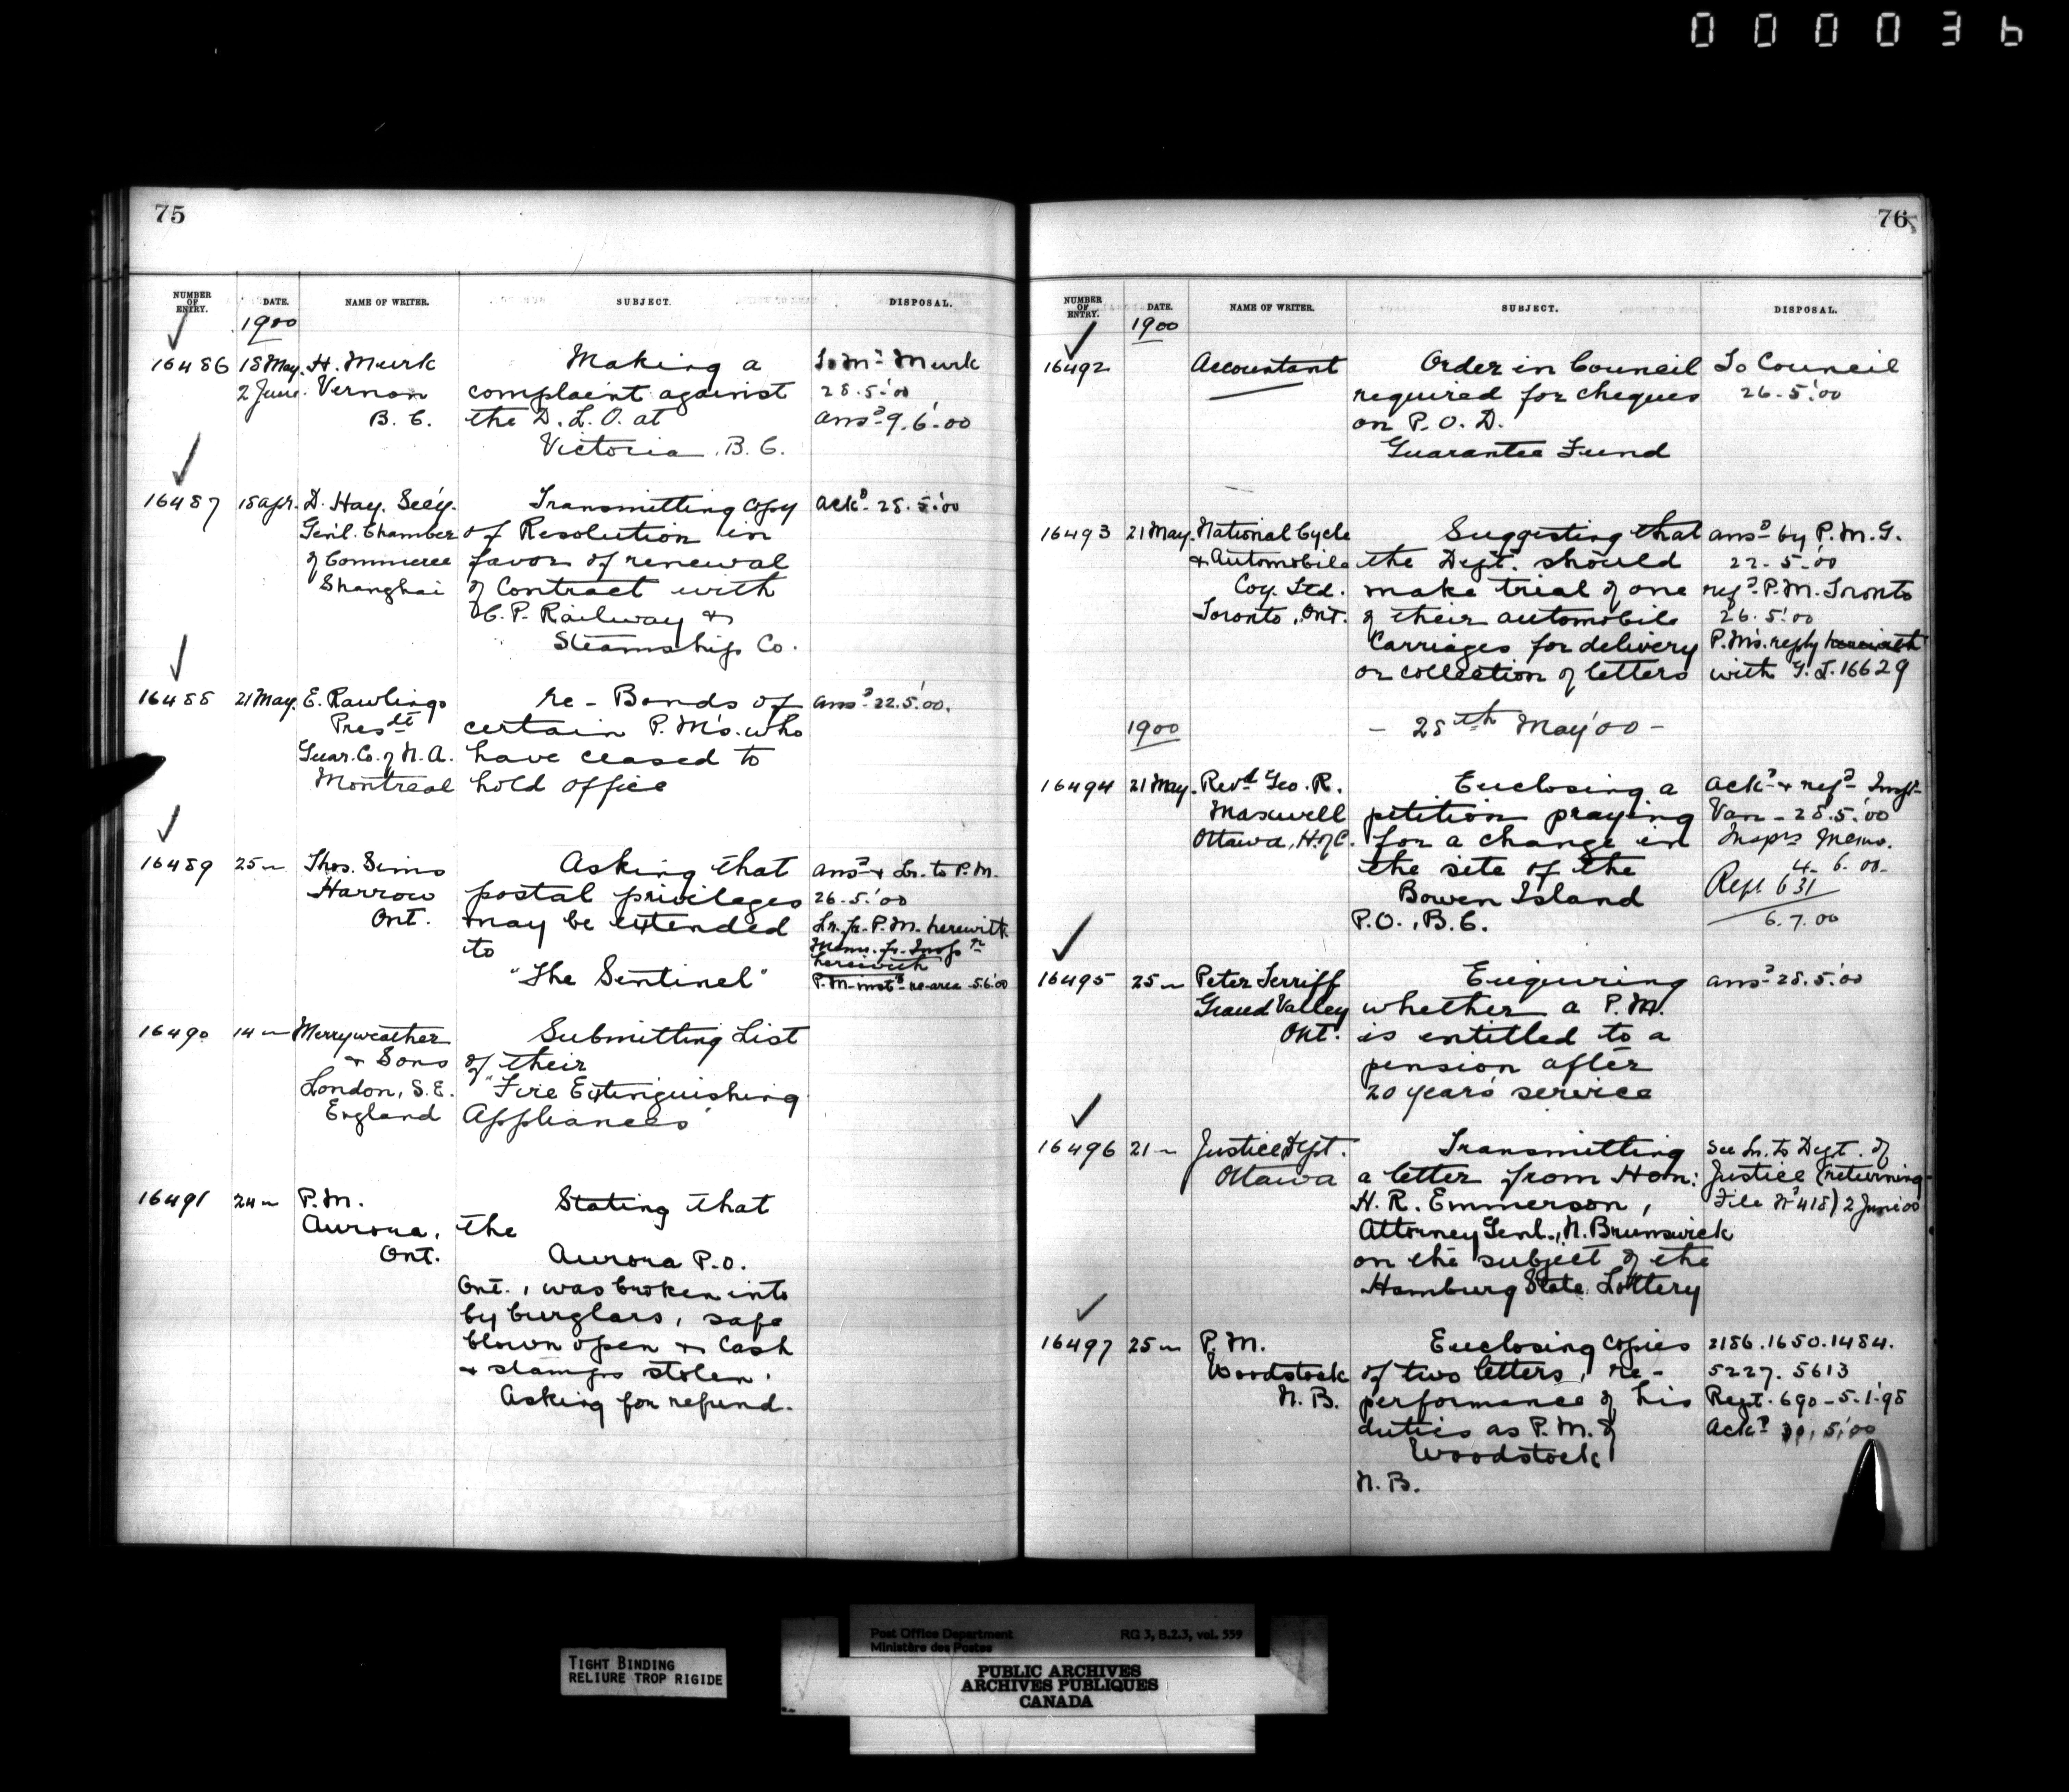 000036
75
NUMBER OF ENTRY. DATE. NAME OF WRITER. SUBJECT. DISPOSAL.
1900
16486 18 May. H. Murk Making a To Mr. Murk
2 June. Vernon complaint against 28.5.'00
B. C. the D. L. O. at ansd. 9.6.'00
Victoria, B. C.
16487 18 apr. D. Hay. Sec'y. Transmitting copy ackd. 28.5.'00
Gen'l. Chamber of Resolution in
of Commerce favor of renewal
Shanghai of Contract with
C. P. Railway &
Steamship Co.
16488 21 May. E. Rawlings re - Bonds of ansd. 22.5.'00.
Presdt certain P. M's. who
Guar. Co. of N. A. have ceased to
Montreal hold office
16489 25 " Thos. Sims Asking that ansd. & Lr. to P. M.
Harrow postal privileges 26.5.'00
Ont. may be extended Lr. fr. P. M. herewith
to Memo. fr. Inspr.
herewith
"The Sentinel" P. M. instd. re area 5.6.'00
16490 14 " Merryweather Submitting List
& Sons of their
London, S. E. "Fire Extinguishing
England Appliances"
16491 24 " P. M. Stating that
Aurora, the
Ont. Aurora P. O.
Ont., was broken into
by burglars, safe
blown open & cash
& stamps stolen.
Asking for refund.
76
NUMBER OF ENTRY. DATE. NAME OF WRITER. SUBJECT. DISPOSAL.
1900
16492 Accountant Order in Council To Council
required for cheques 26.5.'00
on P. O. D.
Guarantee Fund
16493 21 May. National Cycle Suggesting that ansd. by P. M. G.
& Automobile the Dept. should 22.5.'00
Coy. Ltd. make trial of one refd. P. M. Toronto
Toronto, Ont. of their automobile 26.5.'00
Carriages for delivery P. M's. reply herewith
or collection of letters with G. I. 16629
1900 - 28th May '00 -
16494 21 May. Revd. Geo. R. Enclosing a ackd. & refd. Inspr.
Maxwell petition praying Van - 28.5.'00
Ottawa, H. of C. for a change in Insprs Memo.
the site of the 4. 6. 00.
Bowen Island Rept 631
P. O., B. C. 6.7.00
16495 25 " Peter Terriff Enquiring ansd. 28.5.'00
Grand Valley whether a P. M.
Ont. is entitled to a
pension after
20 years service
16496 21 " Justice Dept. Transmitting See Lr. to Dept. of
Ottawa a letter from Hon: Justice (returning
H. R. Emmerson, File No 418) 2 June 00
Attorney Genl., N. Brunswick
on the subject of the
Hamburg State Lottery
16497 25 " P. M. Enclosing copies 2186.1650.1484.
Woodstock of two letters, re - 5227. 5613
N. B. performance of his Rept. 690 - 5.1.'98
duties as P. M. of Ackd. 5.'00
Woodstock
N. B.
TIGHT BINDING
RELIURE TROP RIGIDE
Post Office Department RG 3, B.2.3, vol. 559
Ministère des Postes
PUBLIC ARCHIVES
ARCHIVES PUBLIQUES
CANADA